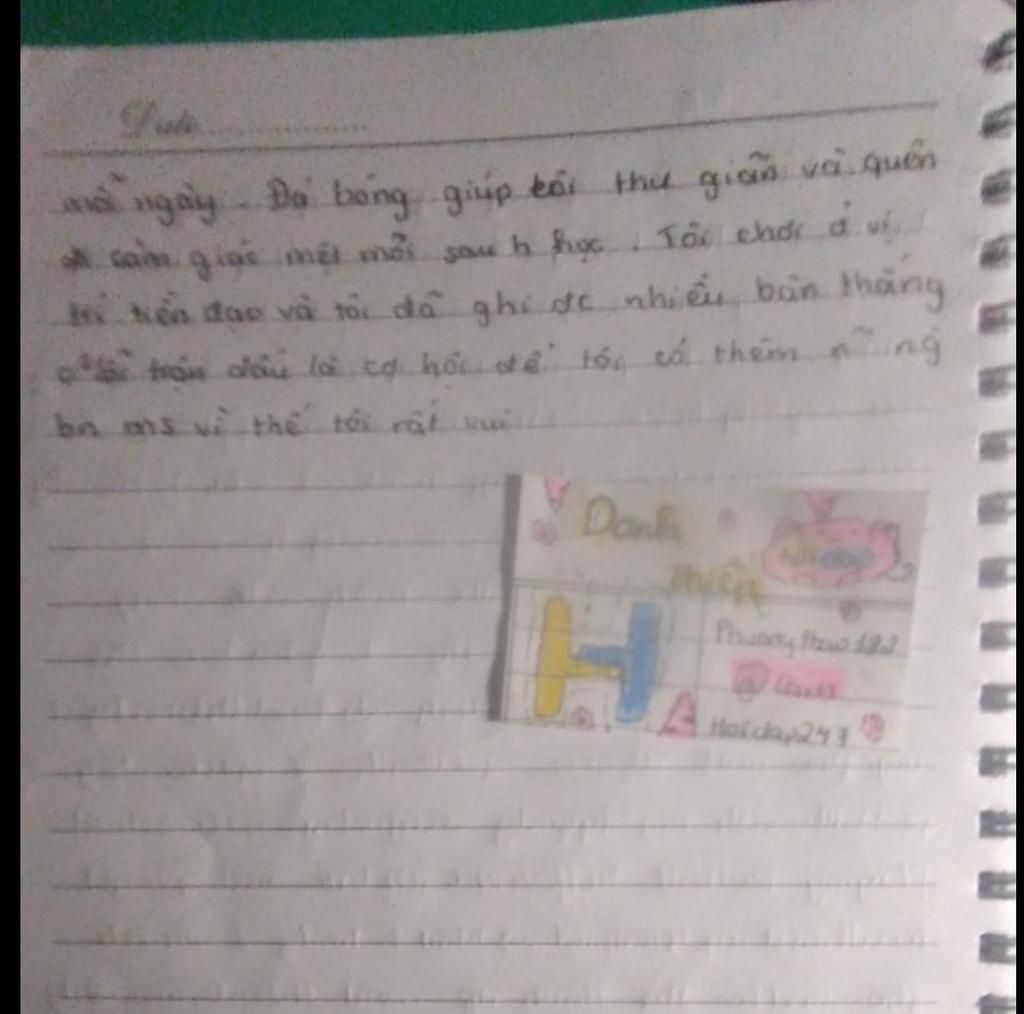 Date
mỗi ngày. Đá bóng giúp tôi thư giãn và quên
cảm giác mệt mỏi sau h học. Tôi chơi ở vị
trí tiền đạo và tôi đã ghi đc nhiều bàn thắng
trận đấu là cơ hội để tôi có thêm n~ ng
bn ms vì thế tôi rất vui
Danh
miện
H
A
Hoidap247